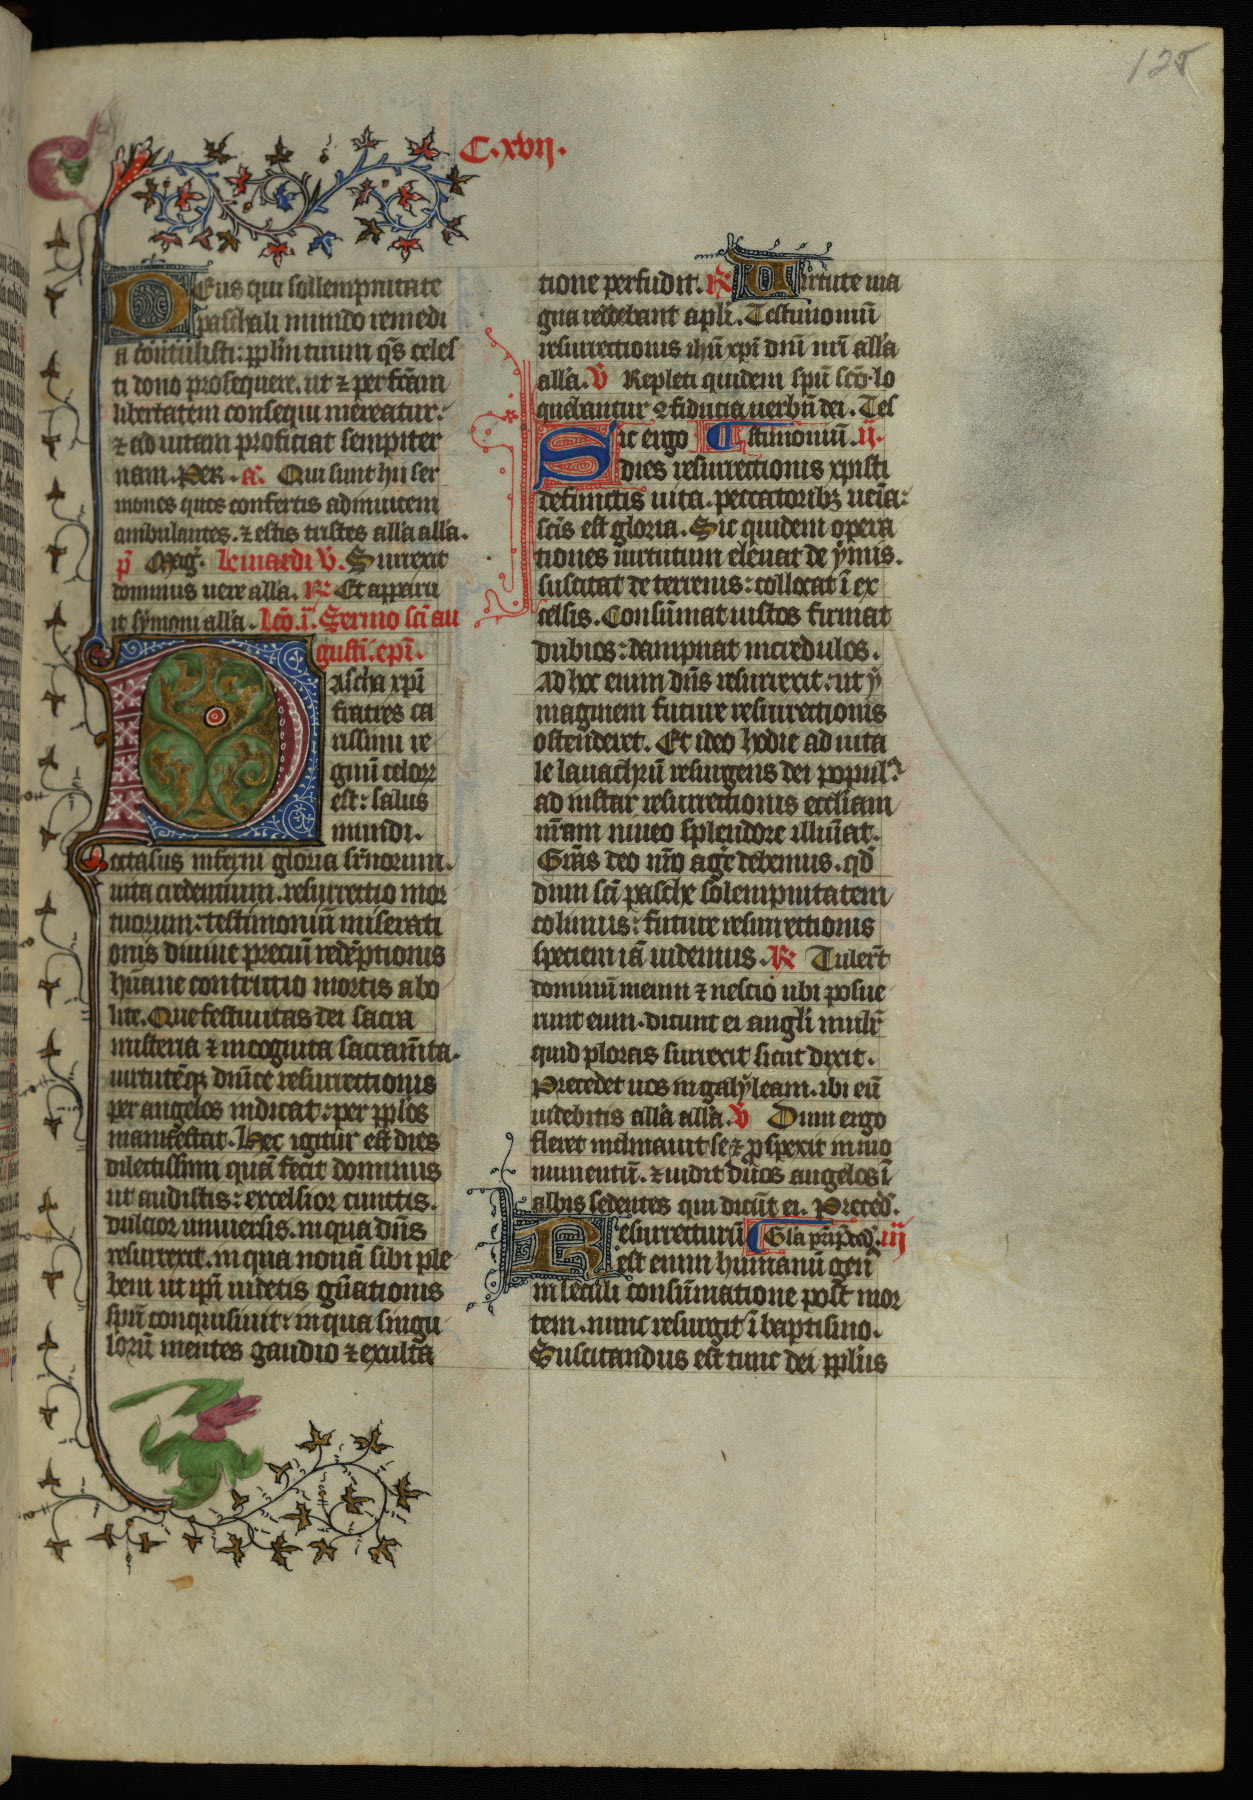 125
C.xvij.
Deus qui sollempnitate
paschali mundo remedi
a contulisti: pplm tuum qs celes
ti dono prosequere. ut ⁊ perfcam
libertatem consequi mereatur.
⁊ ad uitam proficiat sempiter
nam. Per. a. Qui sunt hii ser
mones quos confertis ad inuicem
ambulantes. ⁊ estis tristes alla alla.
p Mag. V. Surrexit
dominus uere alla. R Et apparu
it symoni alla. Lco. i. Sermo sci au
gusti. epi.
Pascha xpi
fratres ca
rissimi re
gnu celorum
est: salus
mundi.
occasus inferni gloria supernorum.
uita credentium. resurrectio mor
tuorum: testimoniu miserati
onis diuine preciu redeptionis
humane contritio mortis abo
lite. Que festiuitas dei sacra
misteria ⁊ incognita sacramta.
uirtuteqz dnice resurrectionis
per angelos indicat: per pplos
manifestat. Hec igitur est dies
dilectissimi qua fecit dominus
ut audistis: excelsior cunctis.
dulcior uniuersis. in qua dns
resurrexit. in qua noua sibi ple
bem ut ipi uidetis gnationis
spu conquisiuit: in qua singu
loru mentes gaudio ⁊ exulta
tione perfudit. R Uirtute ma
gna reddebant apli. Testimoniu
resurrectionis ihu xpi dni nri alla
alla. V Repleti quidem spu sco lo
quebantur cu fiducia uerbu dei. Tes
Sic ergo timoniu. ii.
dies resurrectionis xpisti
defunctis uita. peccatoribz uenia:
scis est gloria. Sic quidem opera
tiones uirtutum eleuat de ymis.
suscitat de terrenis: collocat i ex
celsis. Consumat iustos firmat
dubios: dampnat incredulos.
Ad hoc enim dns resurrexit: ut y
maginem future resurrectionis
ostenderet. Et ideo hodie ad uita
le lauachru resurgens dei popul9
ad instar resurrectionis eccliam
nram niueo splendore illuiat.
Gras deo nro agere debemus. qd
dum sci pasche solempnitatem
colimus: future resurrectionis
speciem ia uidemus. R Tulert
dominu meum ⁊ nescio ubi posue
runt eum. dicunt ei angli mulir
quid ploras surrexit sicut dixit.
Precedet uos in galyleam. ibi eu
uidebitis alla alla. V Dum ergo
fleret inclinauit se ⁊ pspexit in mo
numentu. ⁊ uidit duos angelos i
albis sedentes qui dicut ei. Preced.
Resurrecturu Gla pri. Preced. iij
est enim humanu gen9
in seculi consumatione post mor
tem. nunc resurgit i baptismo.
Suscitandus est tunc dei pplus